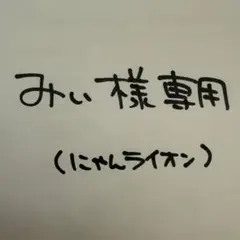 みぃ様専用
(にゃんライオン)